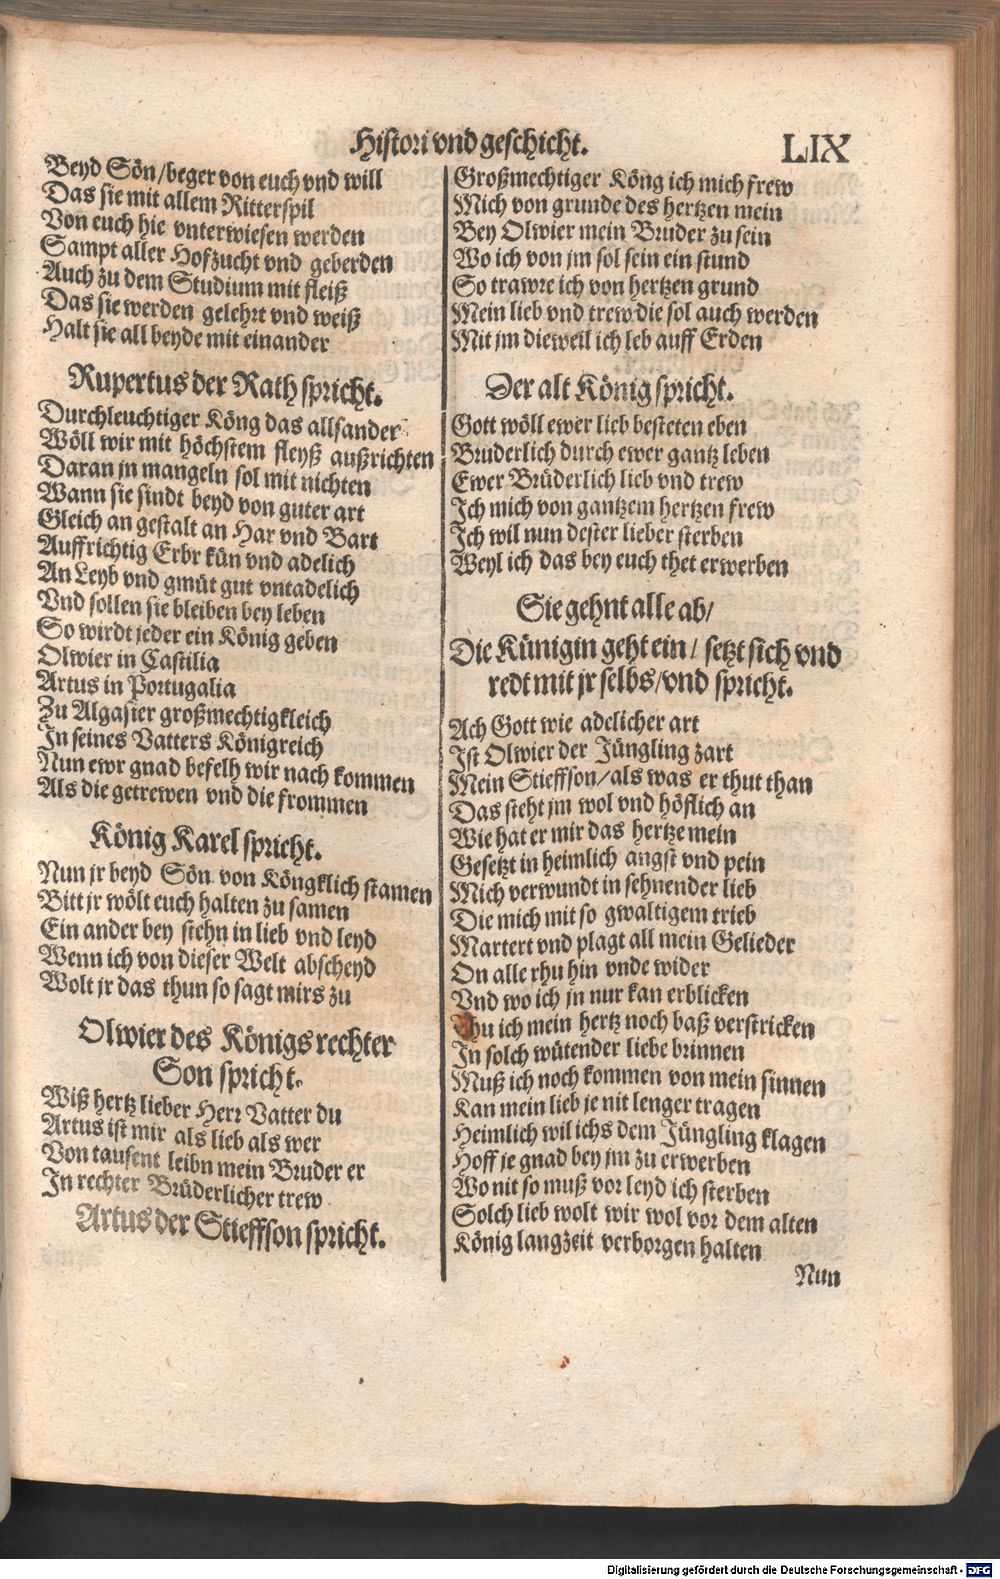 Histori vnd geschicht.
LIX
Beyd Sön/beger von euch vnd will
Das sie mit allem Ritterspil
Von euch hie vnterwiesen werden
Sampt aller Hofzucht vnd geberden
Auch zu dem Studium mit fleiß
Das sie werden gelehrt vnd weiß
Halt sie all beyde mit einander
Rupertus der Rath spricht.
Durchleuchtiger Köng das allsander
Wöll wir mit höchstem fleyß außrichten
Daran jn mangeln sol mit nichten
Wann sie sindt beyd von guter art
Gleich an gestalt an Har vnd Bart
Auffrichtig Erbr kün vnd adelich
An Leyb vnd gmüt gut vntadelich
Vnd sollen sie bleiben bey leben
So wirdt jeder ein König geben
Olwier in Castilia
Artus in Portugalia
Zu Algasier großmechtigkleich
In seines Vatters Königreich
Nun ewr gnad befelh wir nach kommen
Als die getrewen vnd die frommen
König Karel spricht.
Nun jr beyd Sön von Köngklich stamen
Bitt jr wölt euch halten zu samen
Ein ander bey stehn in lieb vnd leyd
Wenn ich von dieser Welt abscheyd
Wolt jr das thun so sagt mirs zu
Olwier des Königs rechter
Son spricht.
Wiß hertz lieber Herr Vatter du
Artus ist mir als lieb als wer
Von tausent leibn mein Bruder er
In rechter Brüderlicher trew
Artus der Stieffson spricht.
Großmechtiger Köng ich mich frew
Mich von grunde des hertzen mein
Bey Olwier mein Bruder zu sein
Wo ich von jm sol sein ein stund
So trawre ich von hertzen grund
Mein lieb vnd trew die sol auch werden
Mit jm dieweil ich leb auff Erden
Der alt König spricht.
Gott wöll ewer lieb besteten eben
Bruderlich durch ewer gantz leben
Ewer Brüderlich lieb vnd trew
Ich mich von gantzem hertzen frew
Ich wil nun dester lieber sterben
Weyl ich das bey euch thet erwerben
Sie gehnt alle ab/
Die Künigin geht ein/ setzt sich vnd
redt mit jr selbs/vnd spricht.
Ach Gott wie adelicher art
Ist Olwier der Jüngling zart
Mein Stieffson/als was er thut than
Das steht jm wol vnd höflich an
Wie hat er mir das hertze mein
Gesetzt in heimlich angst vnd pein
Mich verwundt in sehnender lieb
Die mich mit so gwaltigem trieb
Martert vnd plagt all mein Gelieder
On alle rhu hin vnde wider
Vnd wo ich jn nur kan erblicken
Thu ich mein hertz noch baß verstricken
In solch wütender liebe brinnen
Muß ich noch kommen von mein sinnen
Kan mein lieb je nit lenger tragen
Heimlich wil ichs dem Jüngling klagen
Hoff je gnad bey jm zu erwerben
Wo nit so muß vor leyd ich sterben
Solch lieb wolt wir wol vor dem alten
König langzeit verborgen halten
Nun
Digitalisierung gefördert durch die Deutsche Forschungsgemeinschaft - DFG